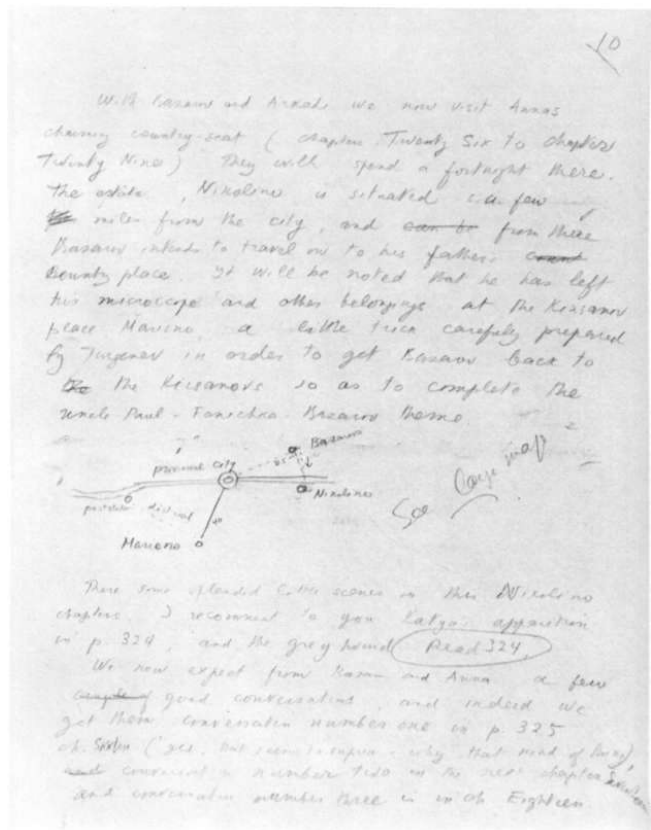 10
With Bazarov and Arkadi we now visit Annas
charming country-seat ( chapters Twenty Six to chapter
Twenty Nine ) They will spend a fortnight there.
The estate , Nikolino is situated a few
miles from the city, and can be from there
Bazarov intends to travel on to his father's
county place. It will be noted that he has left
his microscope and other belongings at the Kirsanov
place Marino, a little trick carefully prepared
by Turgenev in order to get Bazarov back to
the the Kirsanovs so as to complete the
uncle Paul - Fenichka - Bazarov theme.
Bazarov
25
provincial city
Nikolino
See large map
Marieno
There some splendid little scenes in this Nikolino
chapters. I recommend to you Katya's apparition
in p. 324, and the grey hound Read 324.
We now expect from Bazarov and Anna a few
good conversations, and indeed we
get them conversation number one in p. 325
ch. why that kind of thing),
and conversation number two in the next chapter Seventeen
and conversation number three is in ch Eighteen.